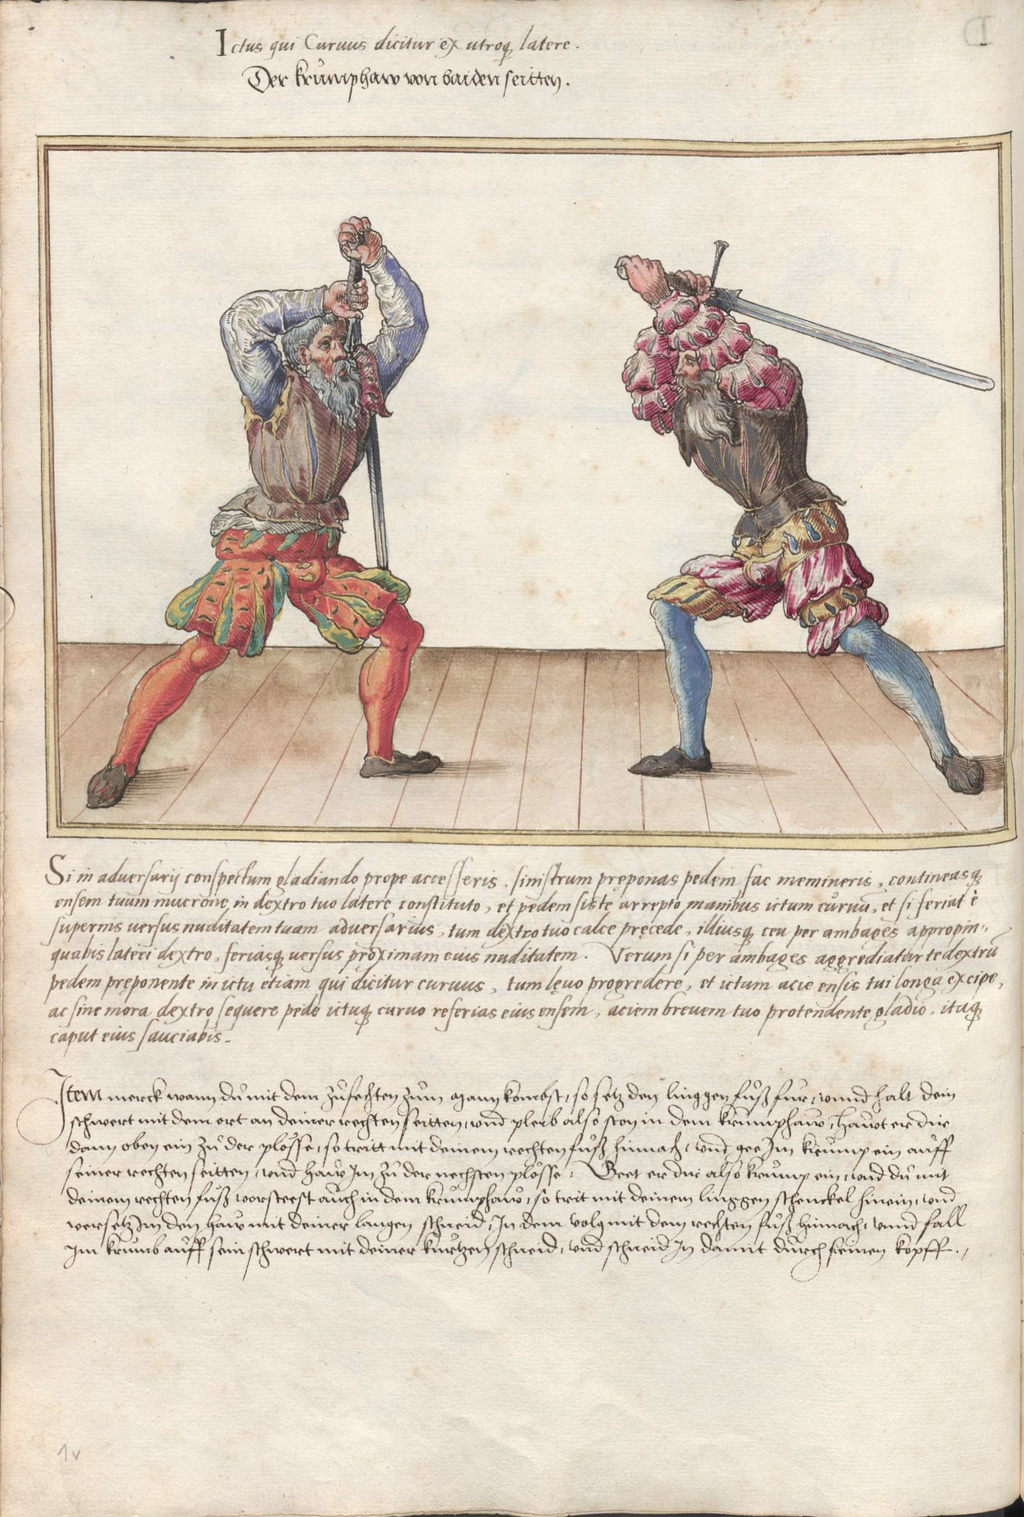 Ictus qui Curuus dicitur ex utroq latere.
Der krumphaw von baiden seitten.
Si in adversarij conspectum gladiando prope accesseris, sinistrum preponas pedem fac memineris, contineasq
ensem tuum mucrone, in dextro tuo latere constituto, et pedem siste arrepto manibus ictum curuu, et si feriat è
supernis versus nuditatem tuam adversarius, tum dextro tuo calce precede, illiusq ceu per ambages appropin-
quabis lateri dextro, feriasq versus proximam eius nuditatem. Verum si per ambages aggrediatur te dextru
pedem preponente in ictu etiam qui dicitur curuus, tum leuo progredere, et ictum acie ensis tui longa excipe,
ac sine mora dextro sequere pede ictuq curuo referias eius ensem, aciem brevem tuo protendente gladio, itaq
caput eius sauciabis.
Item merck wann du mit dem zufechten zum mann kombst, so setz den linggen fuß fur, unnd halt dein
schwert mit dem ort an deiner rechten seitten, und pleib also ston in dem krumphaw, hawt er dir
dann oben ein zu der plosse, so tritt mit deinem rechten fuß hinnach, und gee Im krump ein auff
seiner rechten seitten, und haw Im zu der nechsten plosse, Geet er dir also krump ein, und du mit
deinem rechten fuß vorsteest auch in dem krumphaw, so trit mit deinem linggen schenckel hinein, und
versetz Im den haw mit deiner langen schneid, In dem volg mit dem rechten fuß hinnach, unnd fall
Im krumb auff sein schwert mit deiner kurtzen schneid, und schneid In damit durch seinen kopff.
1v